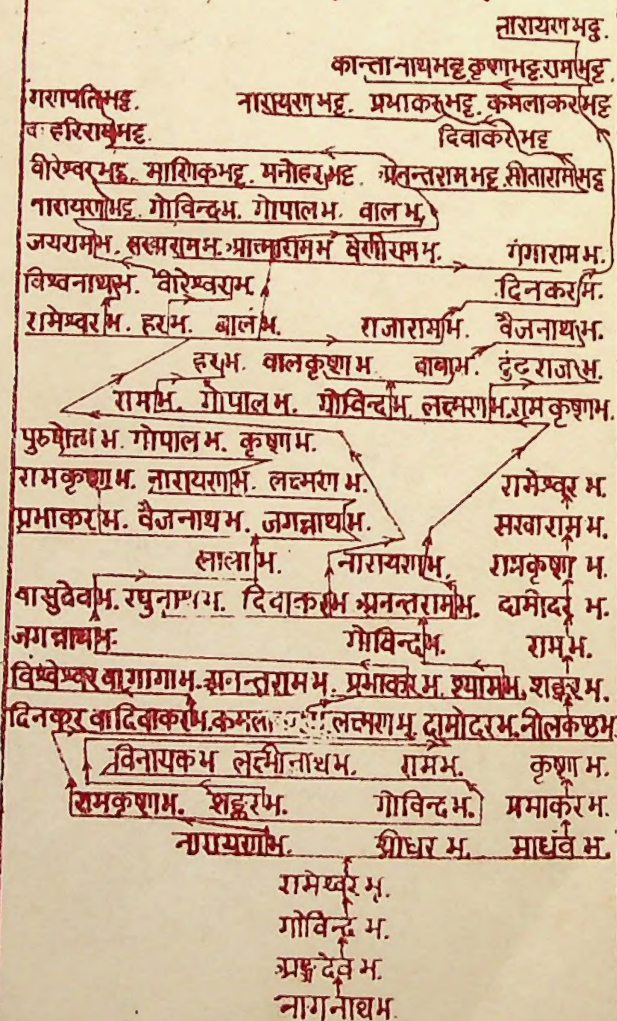 नारायणभट्ट.
कान्तानाथभट्ट कृष्णभट्ट. रामभट्ट.
गणपतिभट्ट. नारायणभट्ट. प्रभाकरभट्ट. कमलाकरभट्ट
व. हरिरामभट्ट. दिवाकरभट्ट
वीरेश्वरभट्ट. माणिकभट्ट. मनोहरभट्ट. अनन्तरामभट्ट. सीतारामभट्ट
नारायणभट्ट. गोविन्दभ. गोपालभ. वालभ.
जयरामभ. सखारामभ. आत्मारामभ वेणीरामभ. गंगारामभ.
विश्वनाथभ. वीरेश्वरभ. दिनकरभ.
रामेश्वरभ. हरभ. बालंभ. राजारामभ. वैजनाथभ.
हरभ. वालकृष्णभ. वाबाभ. ढुंढराजभ.
रामभ. गोपालभ. गोविन्दभ. लक्ष्मणभ. रामकृष्णभ.
पुरुषोत्तमभ. गोपालभ. कृष्णभ.
रामकृष्णभ. नारायणभ. लक्ष्मणभ. रामेश्वरभ.
प्रभाकरभ. वैजनाथभ. जगन्नाथभ. सखारामभ.
लालाभ. नारायणभ. रामकृष्णभ.
वासुदेवभ. रघुनाथभ. दिवाकरभ अनन्तरामभ. दामोदरभ.
जगन्नाथभ. गोविन्दभ. रामभ.
विश्वेश्वर वा गागाभ. अनन्तरामभ. प्रभाकरभ. श्यामभ. शङ्करभ.
दिनकर वा दिवाकरभ. कमला लक्ष्मणभ. दामोदरभ. नीलकण्ठभ
विनायकभ लक्ष्मीनाथभ. रामभ. कृष्णभ.
रामकृष्णभ. शङ्करभ. गोविन्दभ. प्रभाकरभ.
नारायणभ. श्रीधरभ. माधवभ.
रामेश्वरभ.
गोविन्दभ.
अङ्गदेवभ.
नागनाथभ.